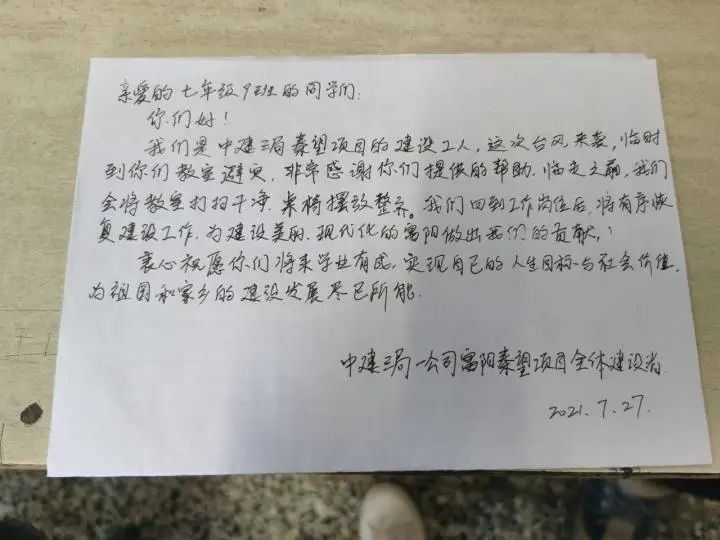 亲爱的七年级9班的同学们:
你们好!
我们是中建三局秦望项目的建设工人,这次台风来袭,临时
到你们教室避灾,非常感谢你们提供的帮助.临走之前,我们
会将教室打扫干净.桌椅摆放整齐。我们回到工作岗位后,将有序恢
复建设工作.为建设美丽、现代化的富阳做出我们的贡献.!
衷心祝愿你们将来学业有成,实现自己的人生目标与社会价值.
为祖国和家乡的建设发展尽己所能.
中建三局一公司富阳秦望项目全体建设者.
2021.7.27.